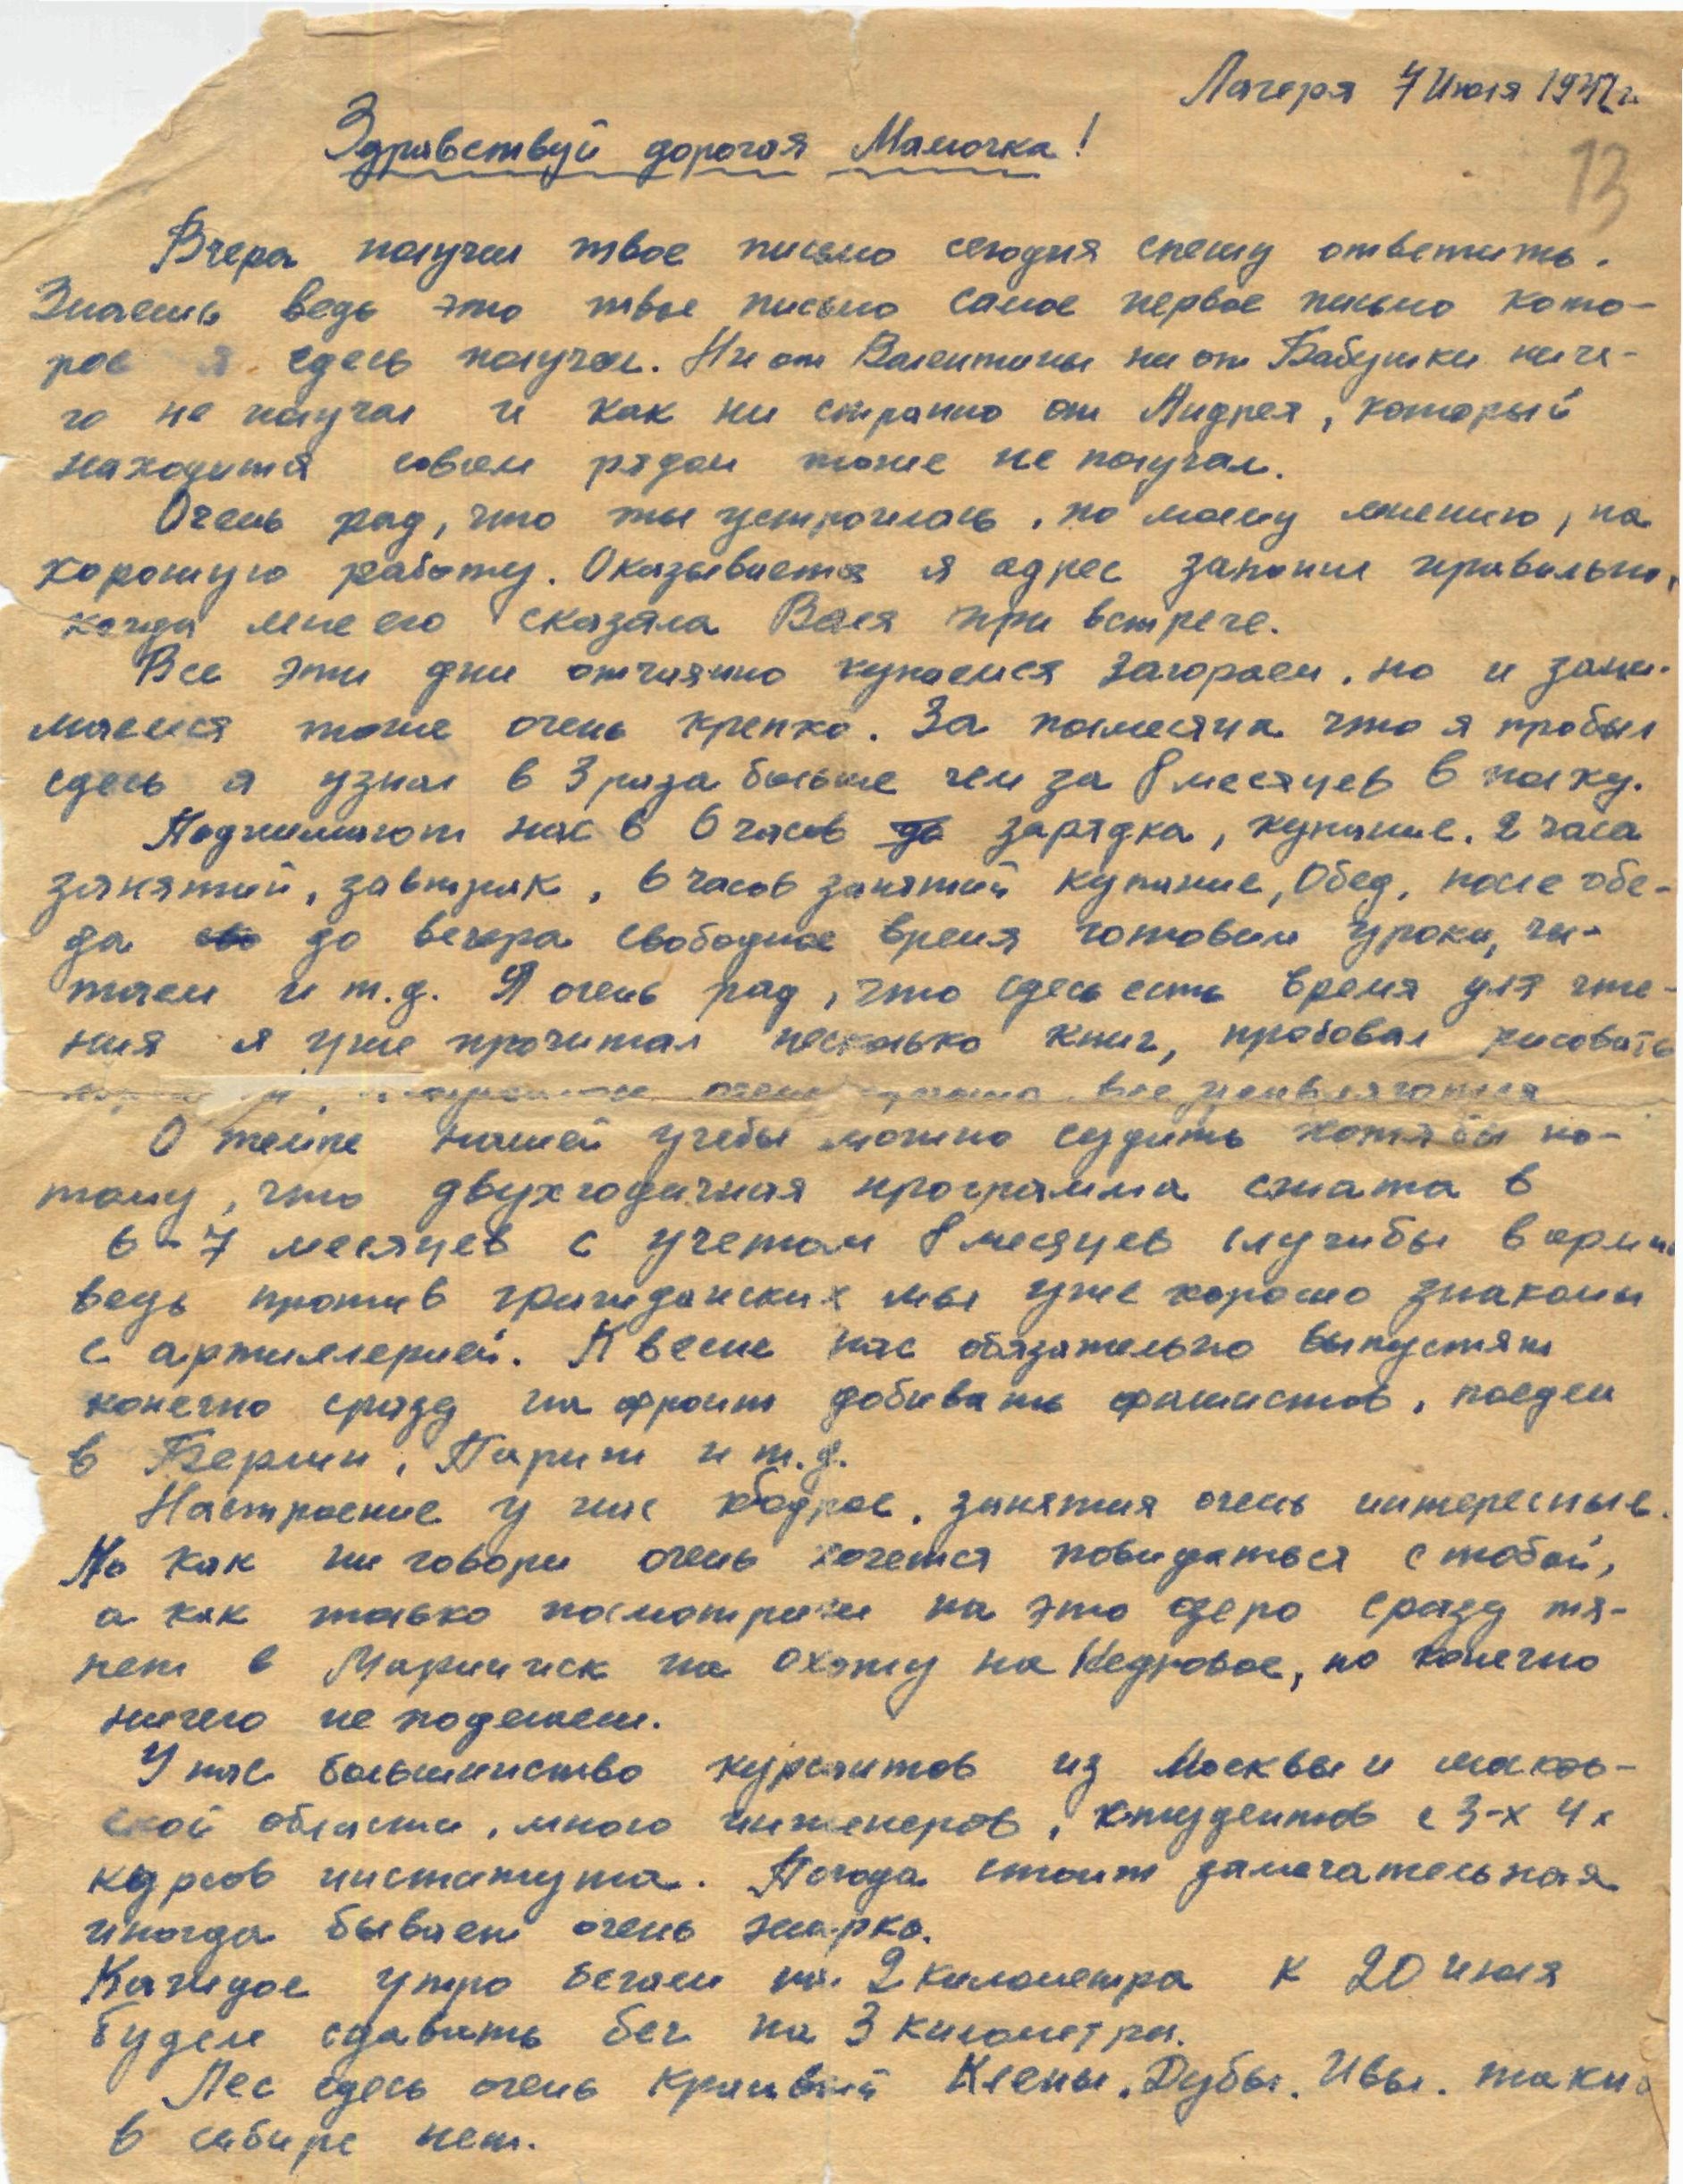 Лагеря 7 Июля 1942 г.
13
Здравствуй дорогая Мамочка!
Вчера получил твое письмо сегодня спешу ответить.
Знаешь ведь это твое письмо самое первое письмо кото-
рое я здесь получил. Ни от Валентины ни от Бабушки ниче-
го не получал и как ни странно от Андрея, который
находится совсем рядом тоже не получал.
Очень рад, что ты устроилась, по моему мнению, на
хорошую работу. Оказывается я адрес запомнил правильно,
когда мне его сказала Валя при встрече.
Все эти дни отчаянно купаемся загораем, но и зани-
маемся тоже очень крепко. За полмесяца что я пробыл
сдесь я узнал в 3 раза больше чем за 8 месяцев в полку.
Поднимают нас в 6 часов зарядка, купание, 2 часа
занятий, завтрак, 6 часов занятий купание, Обед, после обе-
да до вечера свободное время готовим уроки, чи-
таем и т.д. Я очень рад, что сдесь есть время для чте-
ния я уже прочитал несколько книг, пробовал рисовать
очень все удивляются
О темпе нашей учебы можно судить хотя бы по-
тому, что двухгодичная программа сжата в
6-7 месяцев с учетом 8 месяцев службы в армии
ведь против гражданских мы уже хорошо знакомы
с артиллерией. К весне нас обязательно выпустят
конечно сразу на фронт добивать фашистов, поедем
в Берлин, Париж и т.д.
Настроение у нас бодрое, занятия очень интересные.
Но как ни говори очень хочется повидаться с тобой,
а как только посмотришь на это озеро сразу тя-
нет в Мариинск на охоту на Кедровое, но конечно
ничего не поделаеш.
У нас большинство курсантов из Москвы и москов-
ской области, много инженеров, студентов с 3-х 4 х
курсов института. Погода стоит замечательная
иногда бывает очень жарко.
Каждое утро бегаем на 2 километра к 20 июля
будем сдавать бег на 3 километра.
Лес сдесь очень красивый Клены, Дубы, Ивы, таких
в сибире нет.